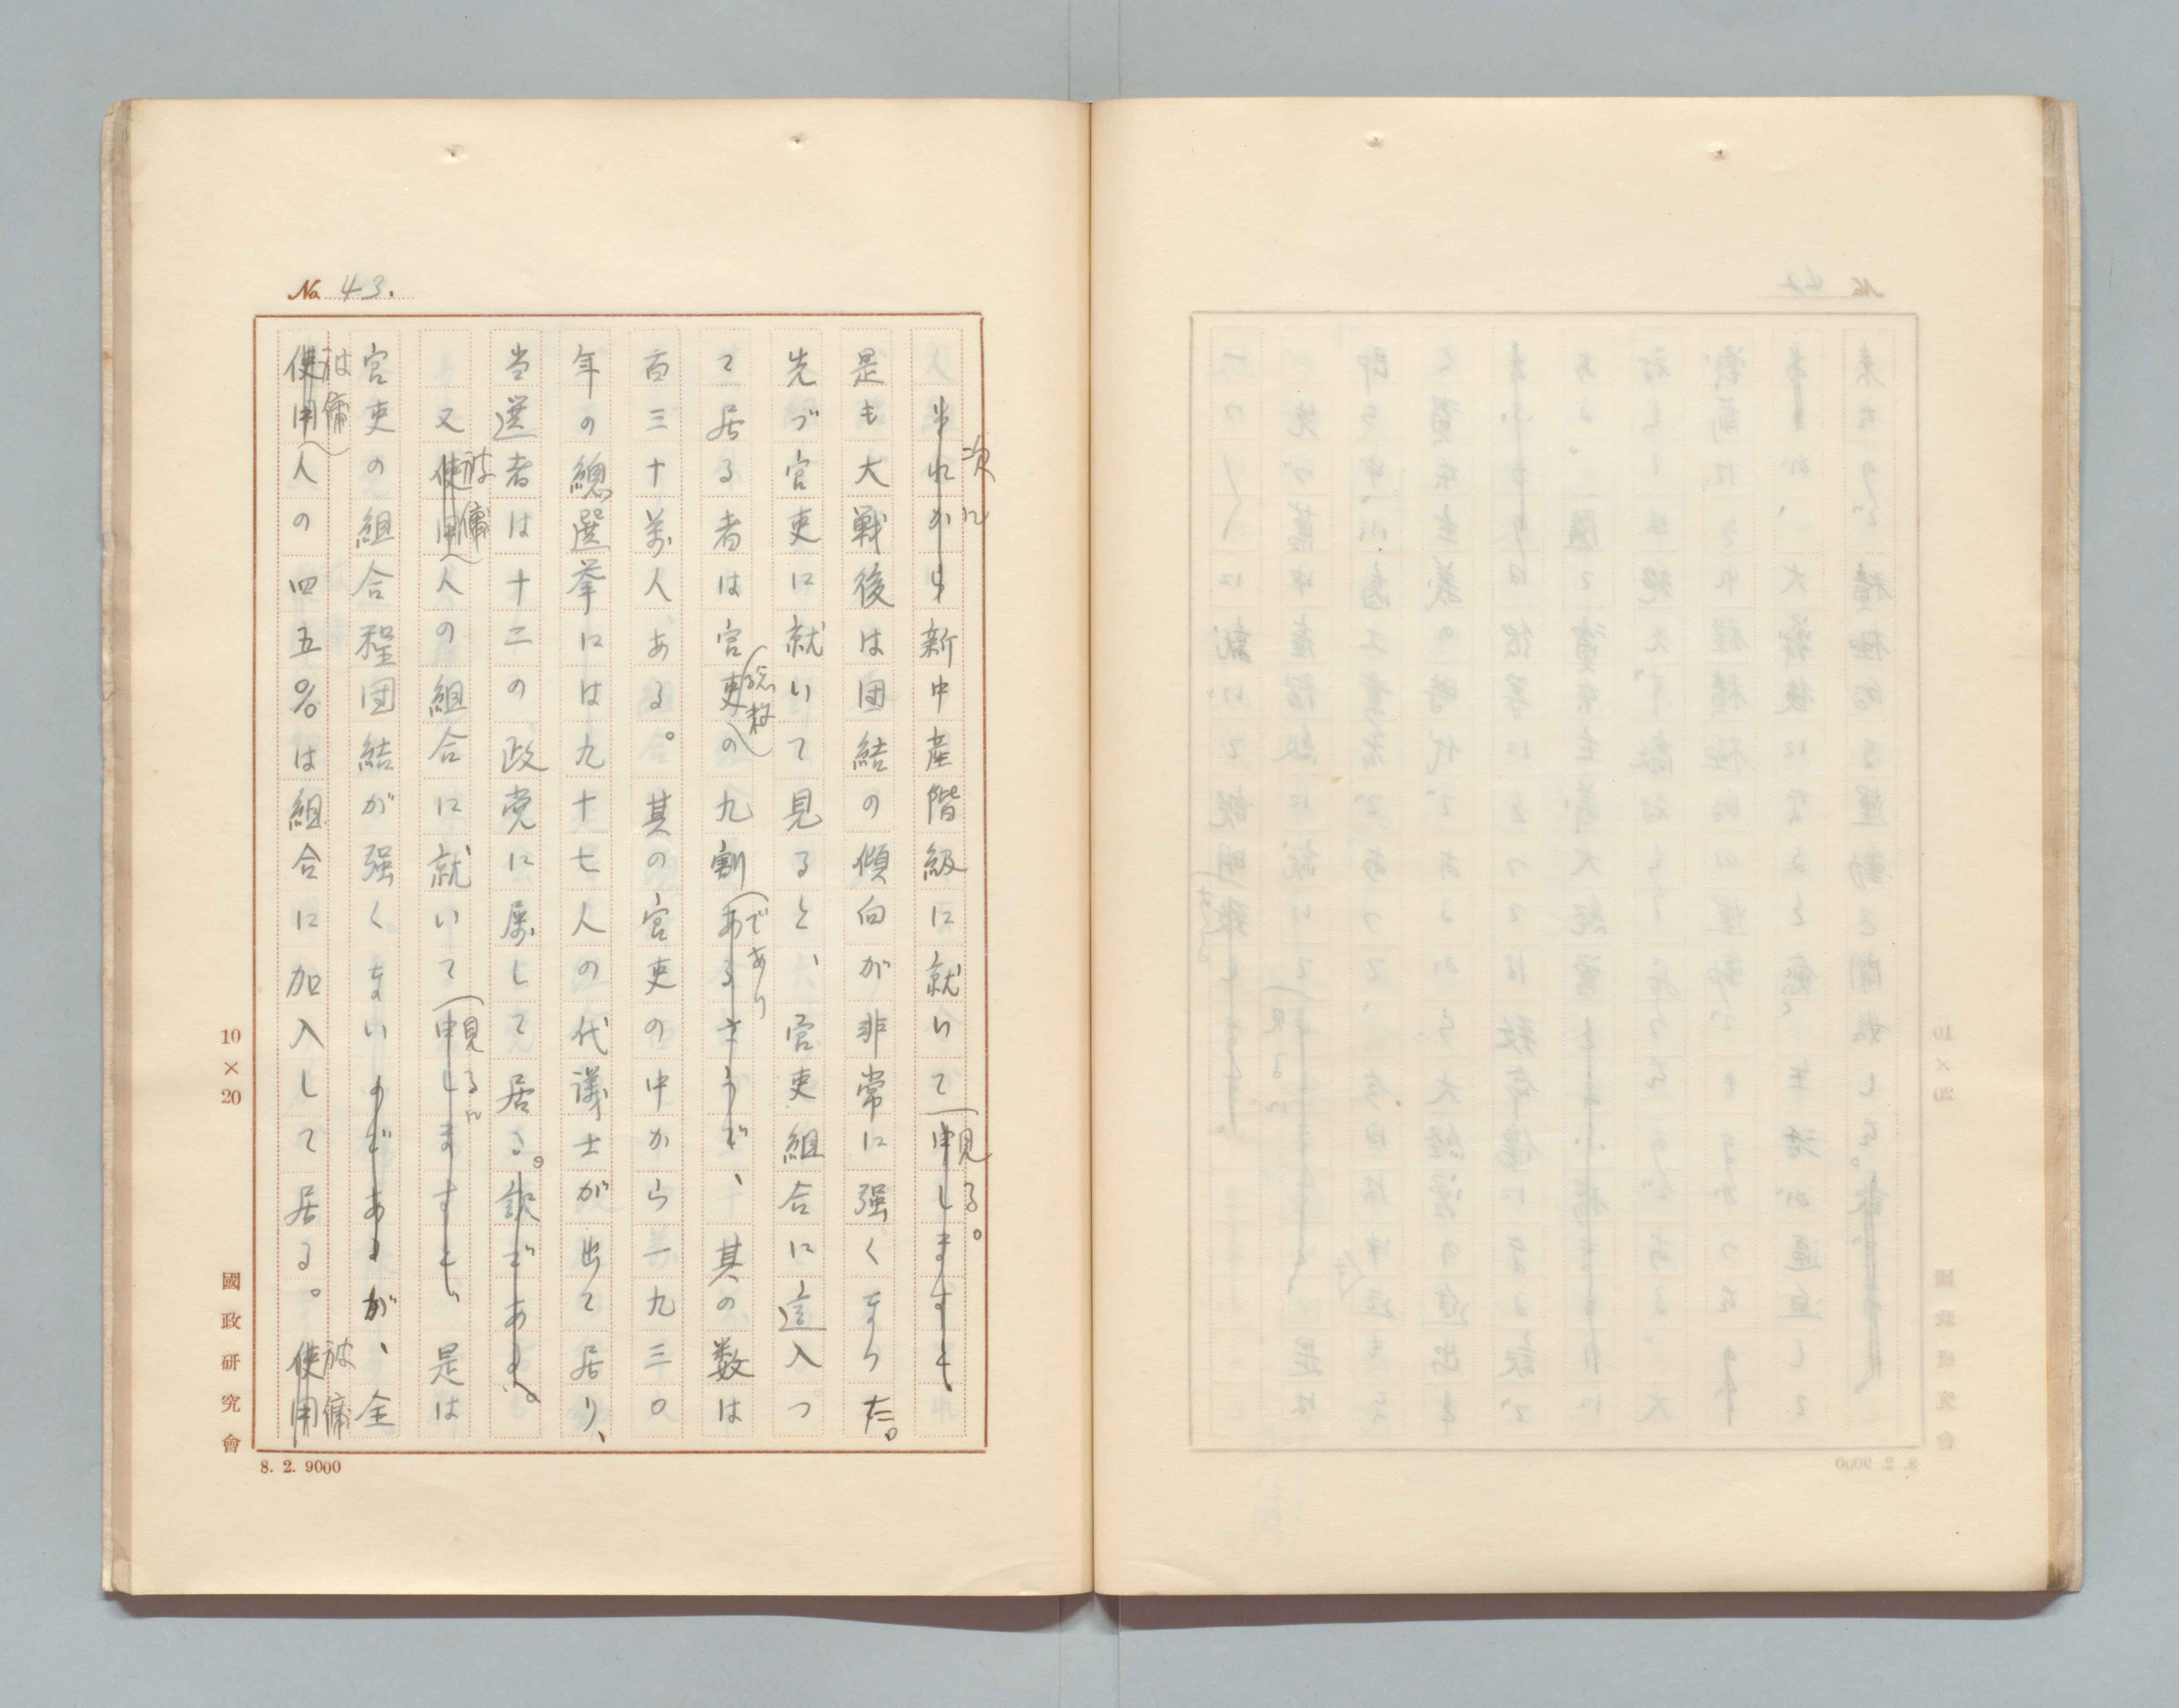 No. 43.
次に
それから新中産階級に就いて申しますと、
見る。
是も大戦後は団結の傾向が非常に強くなつた。
先づ官吏に就いて見ると、官吏組合に這入つ
て居る者は官吏の九割あるさうで、其の数は
総数
であり
百三十万人ある。其の官吏の中から一九三〇
年の總選挙には九十七人の代議士が出て居り、
当選者は十二の政党に属して居る。訳である。
又使用人の組合に就いて申しますと、是は
被傭
見るに
官吏の組合程団結が强くないのであるが、全
使用人の四五%は組合に加入して居る。使用
被傭
被傭
10×20
國政研究會
8. 2. 9000